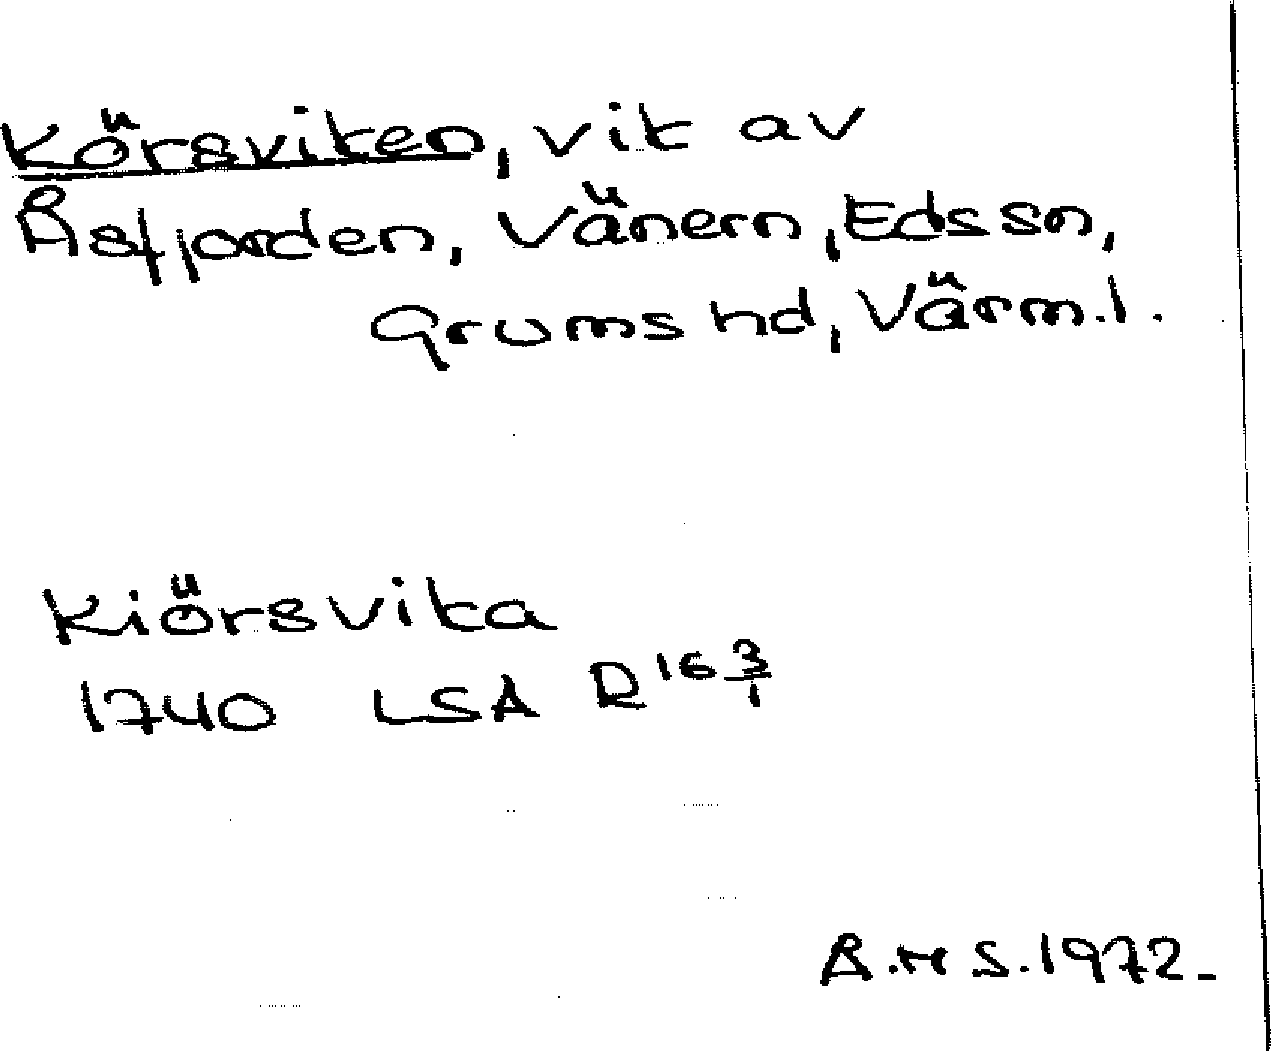 Körsviken, vik av
Åsfjorden, Vänern, Eds sn,
Grums hd, Värml.
Kiörsvika
1740 LSA R16 3/1
A.H S. 1972.